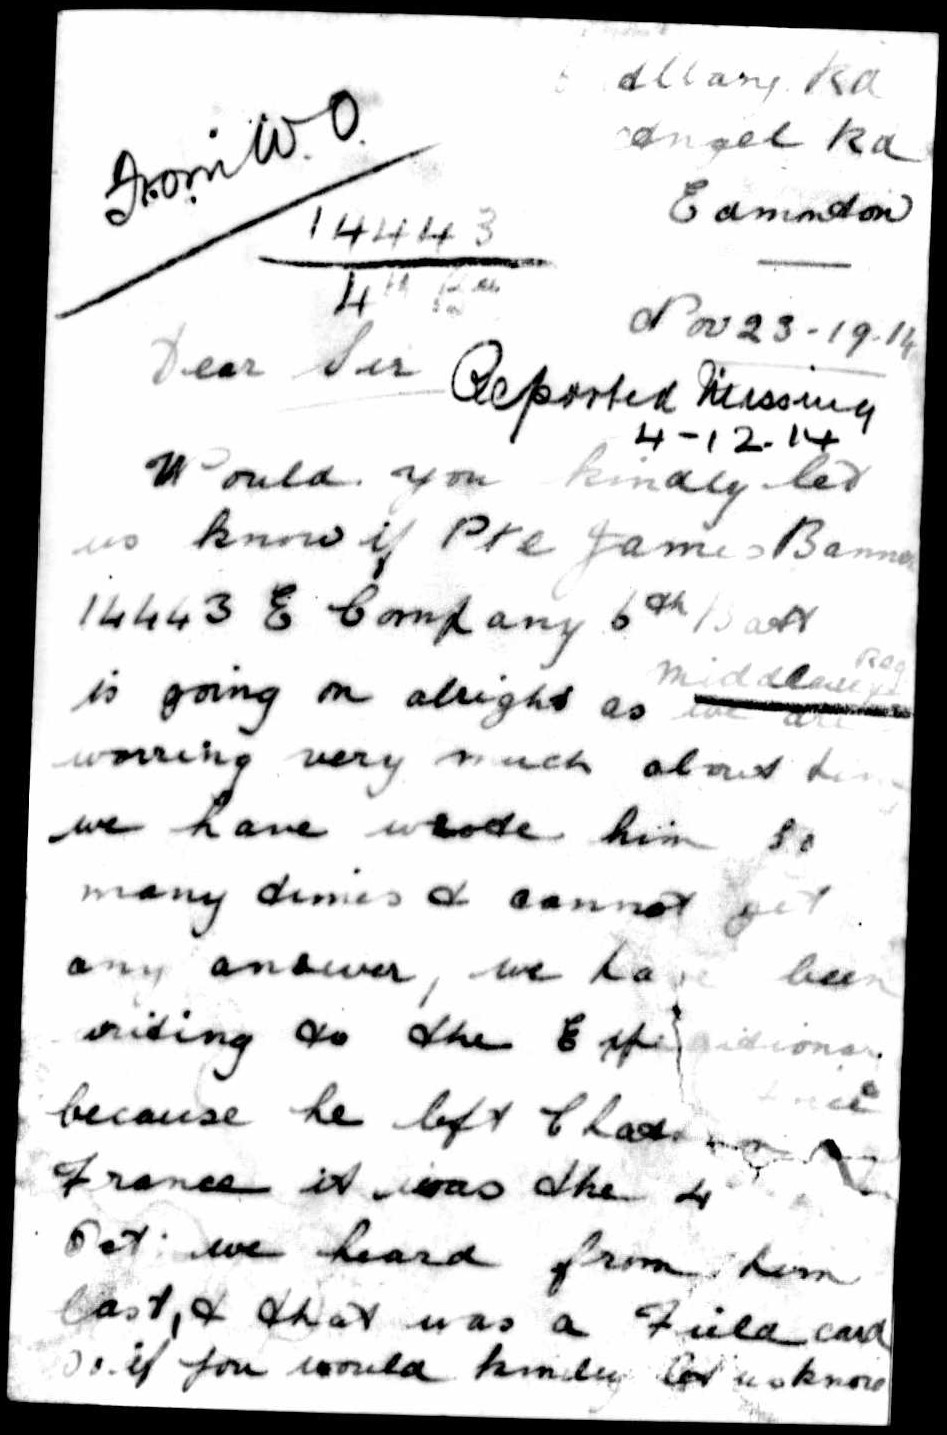 dllany Rd
Angel Rd
Edmonton
From W.O.
14443
4th Bn
Nov 23-19.14
Dear Sir
Reported Missing
4-12.14
Would you kindly let
us know if Pte James Banner
14443 E Company 6th Batt
Middlesex Reg
is going on alright as we are
worring very much about him
we have wrote him so
many times & cannot get
any answer, we have been
writing to the Expeditionary
Force
because he left Chatham
France it was the 4
Oct: we heard from him
last, & that was a Field card
so if you would kindly let us know